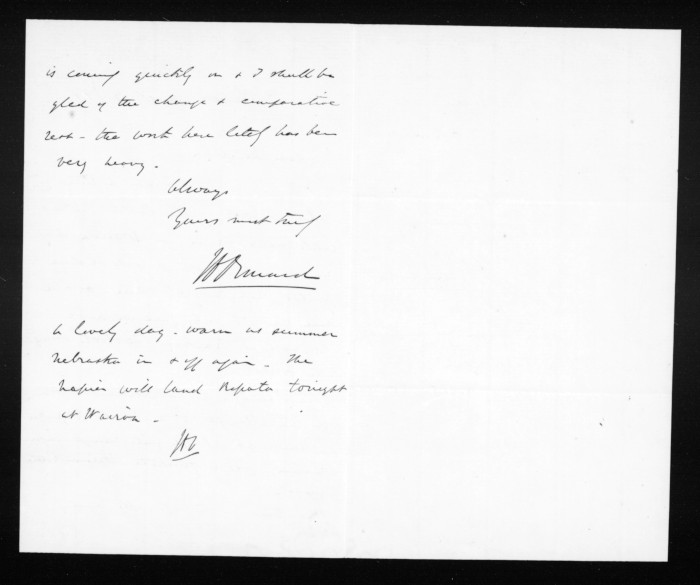 is coming quickly on & I shall be
glad of the change & comparative
rest - the work here lately has been
very heavy.
Always
Yours most truly
A lovely day - warm as summer
Nebraska in & off again - The
Napier will land Ropata tonight
at Wairoa -